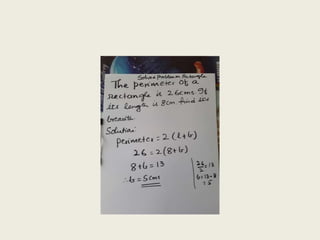 Solved Problem Rectangle
The perimeter of a
rectangle is 26cms. If
its length is 8cm find its
breadth.
Solution:
Perimeter = 2 (l+b)
26 = 2(8+b)
8+b = 13
∴ b = 5cms
26/2 = 13
b = 13-8
= 5